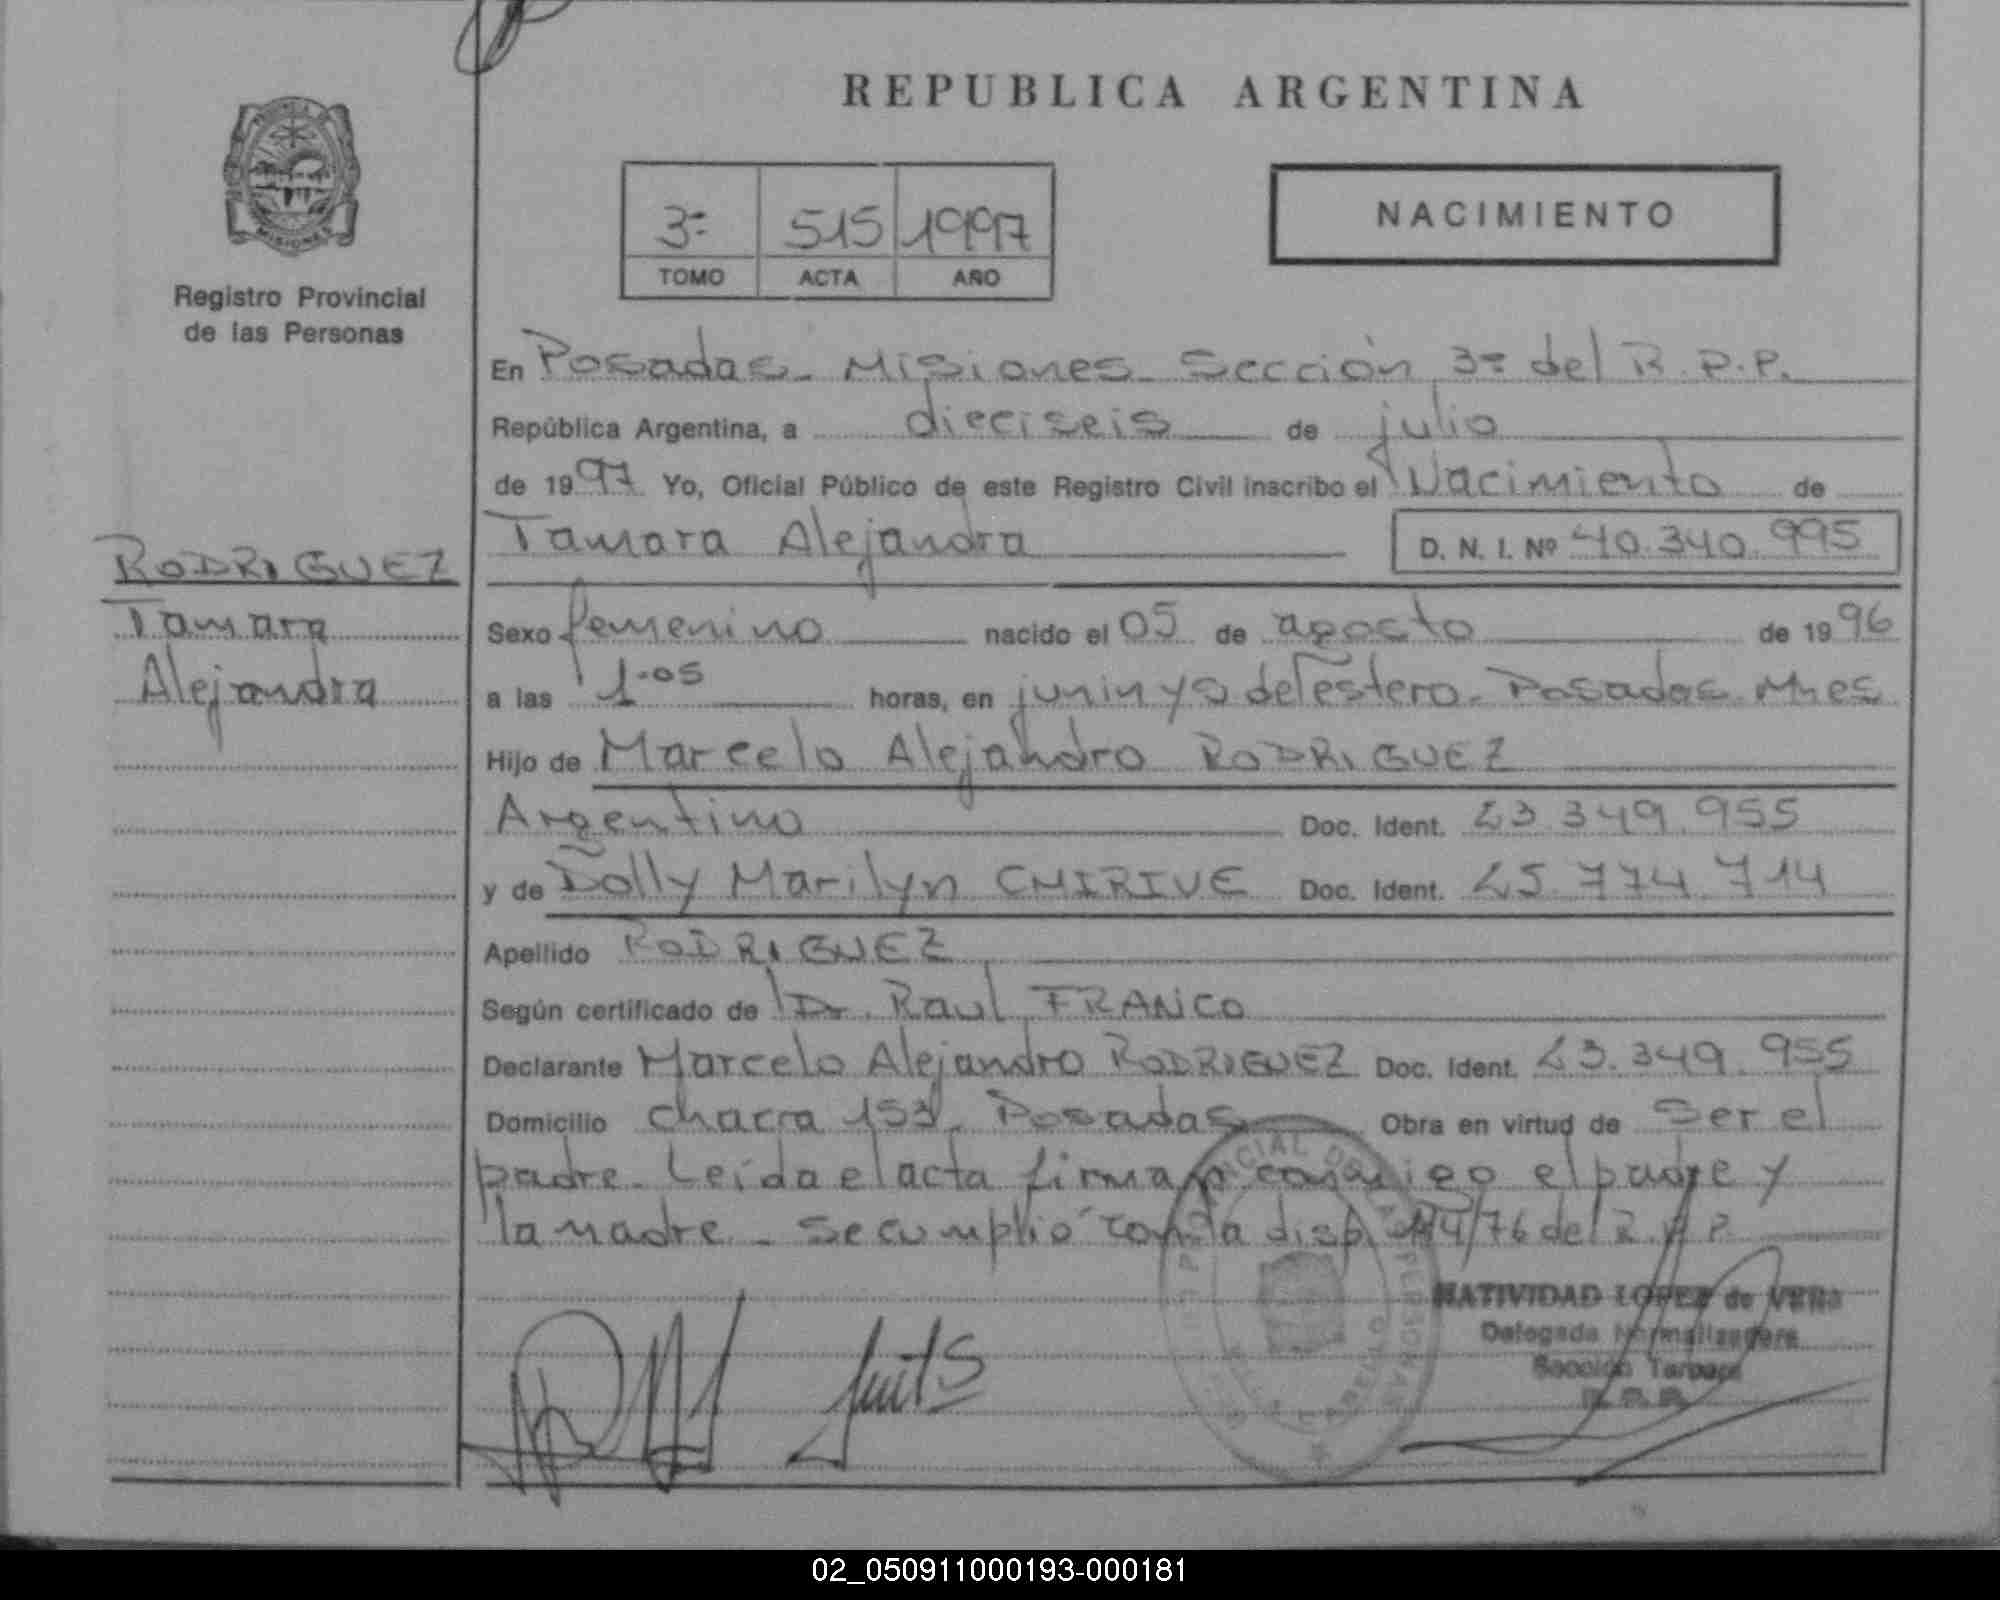 REPUBLICA ARGENTINA
MISIONES
Registro Provincial
de las Personas
3º 515 1997
TOMO ACTA AÑO
NACIMIENTO
En Posadas - Misiones - Sección 3º del R.P.P.
República Argentina, a dieciseis de julio
de 1997 Yo, Oficial Público de este Registro Civil inscribo el Nacimiento de
Tamara Alejandra D. N. I. Nº 40.340.995
RODRIGUEZ
Tamara
Alejandra
Sexo femenino nacido el 05 de agosto de 1996
a las 1-05 horas, en junin y s del Posadas Mnes
Hijo de Marcelo Alejandro RODRIGUEZ
Argentino Doc. Ident. 23.349.955
y de Dolly Marilyn CHIRIVE Doc. Ident. 25.774.714
Apellido RODRIGUEZ
Según certificado de Dr. Raul FRANCO
Declarante Marcelo Alejandro RODRIGUEZ Doc. Ident. 23.349.955
Domicilio chacra 153 - Posadas Obra en virtud de Ser el
padre - Leída el acta firman conmigo el padre y
la madre - se cumplió con la disp. /76 del R.P.P.
NATIVIDAD LOPEZ de VERA
Delegada Normalizadora
Sección Tercera
R.P.P.
02_050911000193-000181